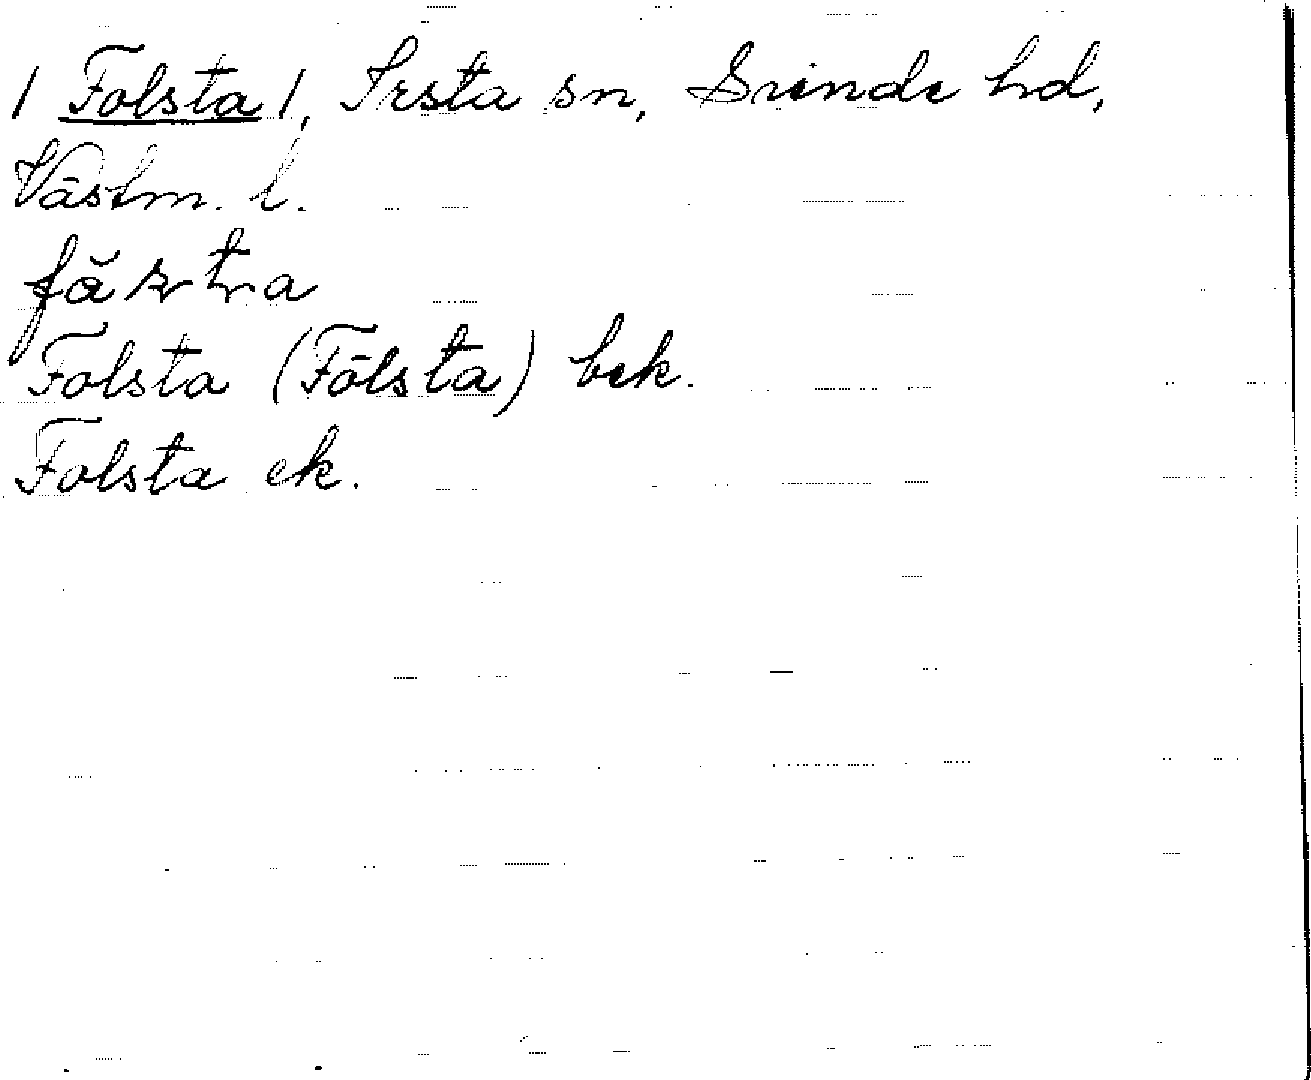 | Folsta |, Irsta sn, Siende hd,
Västm. l.
Folsta (Fölsta) bek.
Folsta ek.